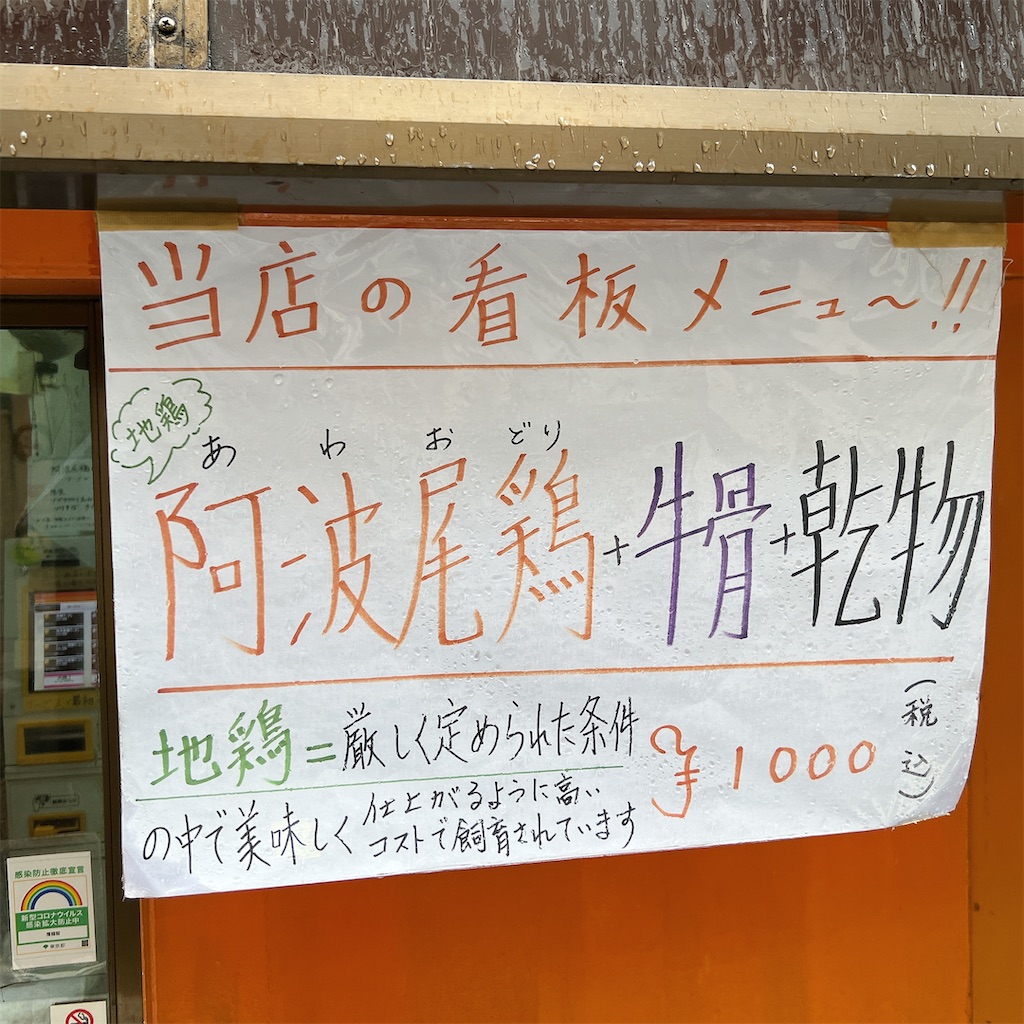 当店の看板メニュ〜!!
地鶏
あわおどり
阿波尾鶏+牛骨+乾物
地鶏=厳しく定められた条件
の中で美味しく仕上がるように高い
コストで飼育されています
¥1000
(税込)
感染防止徹底宣言
新型コロナウイルス
感染拡大防止中
東京都